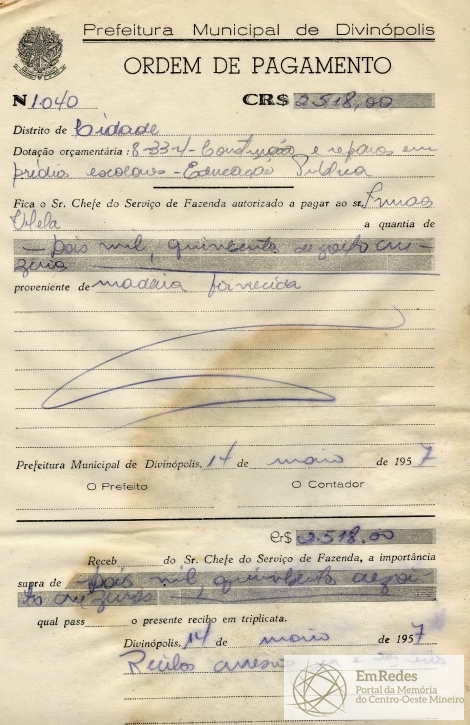 Prefeitura Municipal de Divinópolis
ORDEM DE PAGAMENTO
N 1.040 CR$ 2.518,00
Distrito de Cidade
Dotação orçamentária: 8-33-4-Construção e reparos em
prédios escolares - Educação Pública
Fica o Sr. Chefe do Serviço de Fazenda autorizado a pagar ao sr. Irmãos
Vilela a quantia de
- Dois mil, quinhentos dezoito cru-
zeiros
proveniente de madeira fornecida
Prefeitura Municipal de Divinópolis, 14 de maio de 1957
O Prefeito O Contador
Cr$ 2.518,00
Receb do Sr. Chefe do Serviço de Fazenda, a importância
supra de - Dois mil, quinhentos dezoi
to cruzeiros
qual pass o presente recibo em triplicata.
Divinópolis, 14 de maio de 1957
Recibos
EmRedes
Portal da Memória
do Centro-Oeste Mineiro